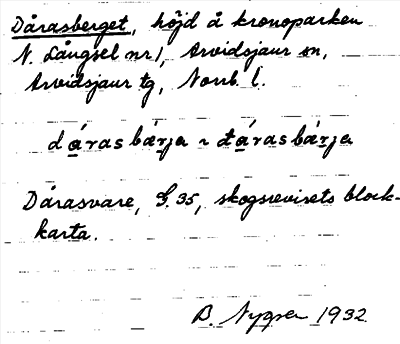 Dårasberget, höjd å kronoparken
N. Långsel nr 1, Arvidsjaur sn,
Arvidsjaur tg, Norrb. l.
dárasbærja ~ đárasbærja
Dårasvare, G. 35, skogsrevirets block-
karta.
B. Nygren 1932